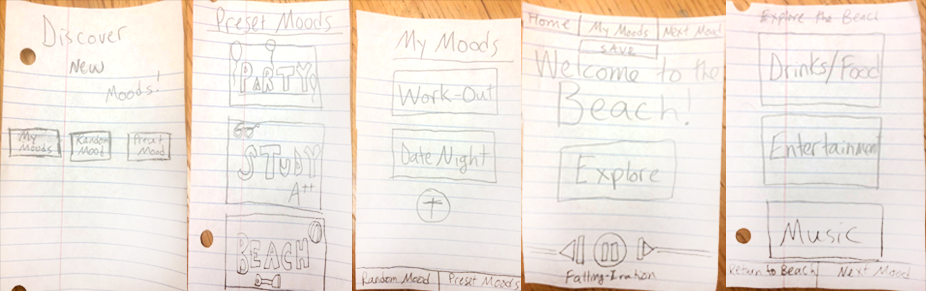 Discover
New
Moods!
My Moods
Random Mood
Preset Mood
Preset Moods
PARTY
Go
STUDY
A++
BEACH
My Moods
Work-Out
Date Night
Random Mood
Preset Moods
Home
My Moods
Next Mood
SAVE
Welcome to the
Beach!
Explore
Falling-Iration
Explore the Beach
Drinks/Food
Entertainment
Music
Return to Beach
Next Mood